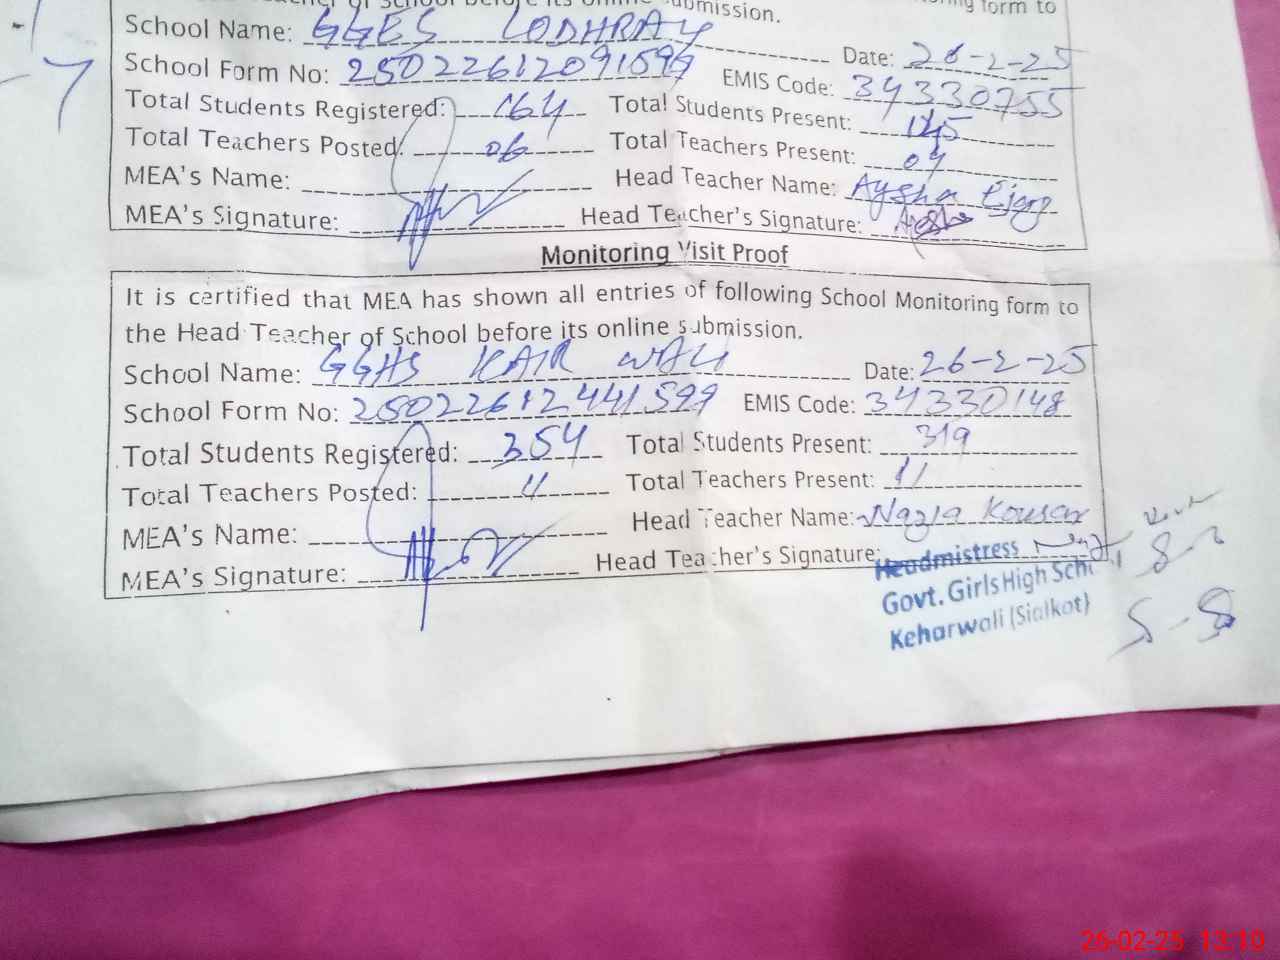 Teacher of School before its online submission.
School Name: GGES LODHRAY Date: 26-2-25
School Form No: 25022612091599 EMIS Code: 34330755
Total Students Registered: 164 Total Students Present: 145
Total Teachers Posted: 06 Total Teachers Present: 04
MEA's Name: Head Teacher Name: Aysha Ejaz
MEA's Signature: Head Teacher's Signature: Aysha
Monitoring Visit Proof
It is certified that MEA has shown all entries of following School Monitoring form to
the Head Teacher of School before its online submission.
School Name: GGHS KAIR WALI Date: 26-2-25
School Form No: 25022612441599 EMIS Code: 34330148
Total Students Registered: 354 Total Students Present: 319
Total Teachers Posted: 11 Total Teachers Present: 11
MEA's Name: Head Teacher Name: Nazia Kousar
MEA's Signature: Head Teacher's Signature:
Headmistress
Govt. Girls High Scho
Keharwali (Sialkot)
5-8
26-02-25 13:10